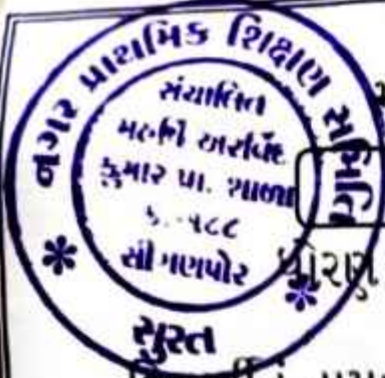 નગર પ્રાથમિક શિક્ષણ સમિતિ
સંચાલિત
મહર્ષિ અરવિંદ
કુમાર પ્રા. શાળા
સીંગણપોર
ધોરણ
સુરત